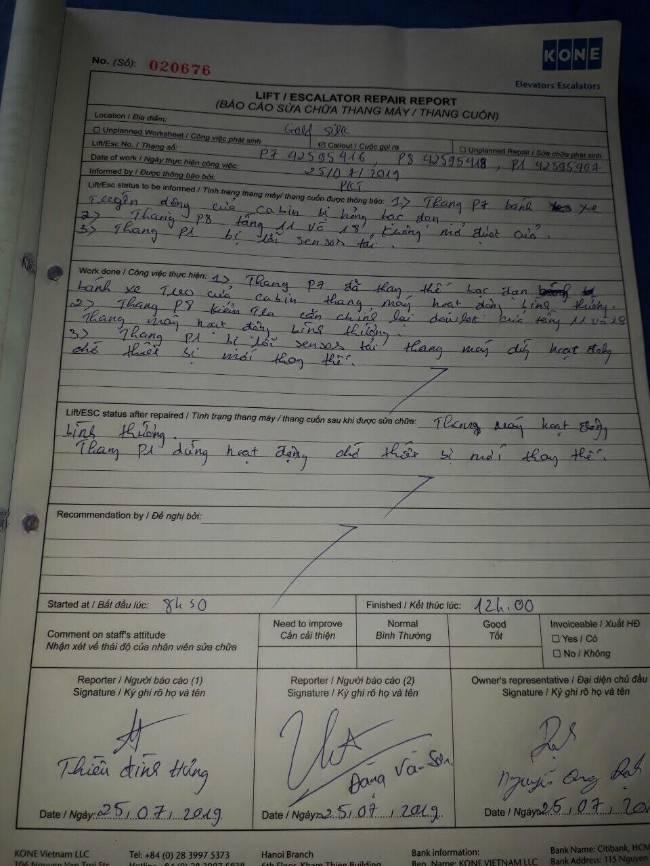 No. (Số): 020676
KONE
Elevators Escalators
LIFT / ESCALATOR REPAIR REPORT
(BÁO CÁO SỬA CHỮA THANG MÁY / THANG CUỐN)
Location / Địa điểm: Gold
☐ Unplanned Worksheet / Công việc phát sinh ☑ Callout / Cuộc gọi ra ☐ Unplanned Repair / Sửa chữa phát sinh
Lift/Esc No. / Thang số: P7 42595416, P8 42595418, P1 42595407
Date of work / Ngày thực hiện công việc: 25/07/2019
Informed by / Được thông báo bởi:
Lift/Esc status to be informed / Tình trạng thang máy/ thang cuốn được thông báo: 1) Thang P7 bánh xe
Truyền động cửa cabin bị hỏng bạc đạn
2) Thang P8 tầng 11 và 18, không mở được cửa.
3) Thang P1 bị lỗi sensor tải.
Work done / Công việc thực hiện: 1) Thang P7 đã thay thế bạc đạn
bánh xe Treo cửa cabin thang máy hoạt động bình thường.
2) Thang P8 kiểm Tra cân chỉnh lại cửa tầng 11 và 18
Thang máy hoạt động bình thường.
3) Thang P1 bị lỗi sensor tải thang máy dừng hoạt động
chờ thiết bị mới thay thế.
Lift/ESC status after repaired / Tình trạng thang máy / thang cuốn sau khi được sửa chữa: Thang máy hoạt động
bình thường.
Thang P1 dừng hoạt động chờ thiết bị mới thay thế.
Recommendation by / Đề nghị bởi:
Started at / Bắt đầu lúc: 8h50 Finished / Kết thúc lúc: 12h.00
Comment on staff's attitude
Nhận xét về thái độ của nhân viên sửa chữa
Need to improve
Cần cải thiện
Normal
Bình Thường
Good
Tốt
Invoiceable / Xuất HĐ
☐ Yes / Có
☐ No / Không
Reporter / Người báo cáo (1)
Signature / Ký ghi rõ họ và tên
Thiên Đình Hưng
Date / Ngày: 25, 07, 2019
Reporter / Người báo cáo (2)
Signature / Ký ghi rõ họ và tên
Đặng Văn Sơn
Date / Ngày: 25, 07, 2019
Owner's representative / Đại diện chủ đầu
Signature / Ký ghi rõ họ và tên
Nguyễn
Date / Ngày: 25, 07,
KONE Vietnam LLC
Tel: +84 (0) 28 3997 5373
Hanoi Branch
Bank information:
Ben. Name: KONE Vietnam LLC
Bank Name: Citibank, HCM
Bank Address: 115 Nguyen